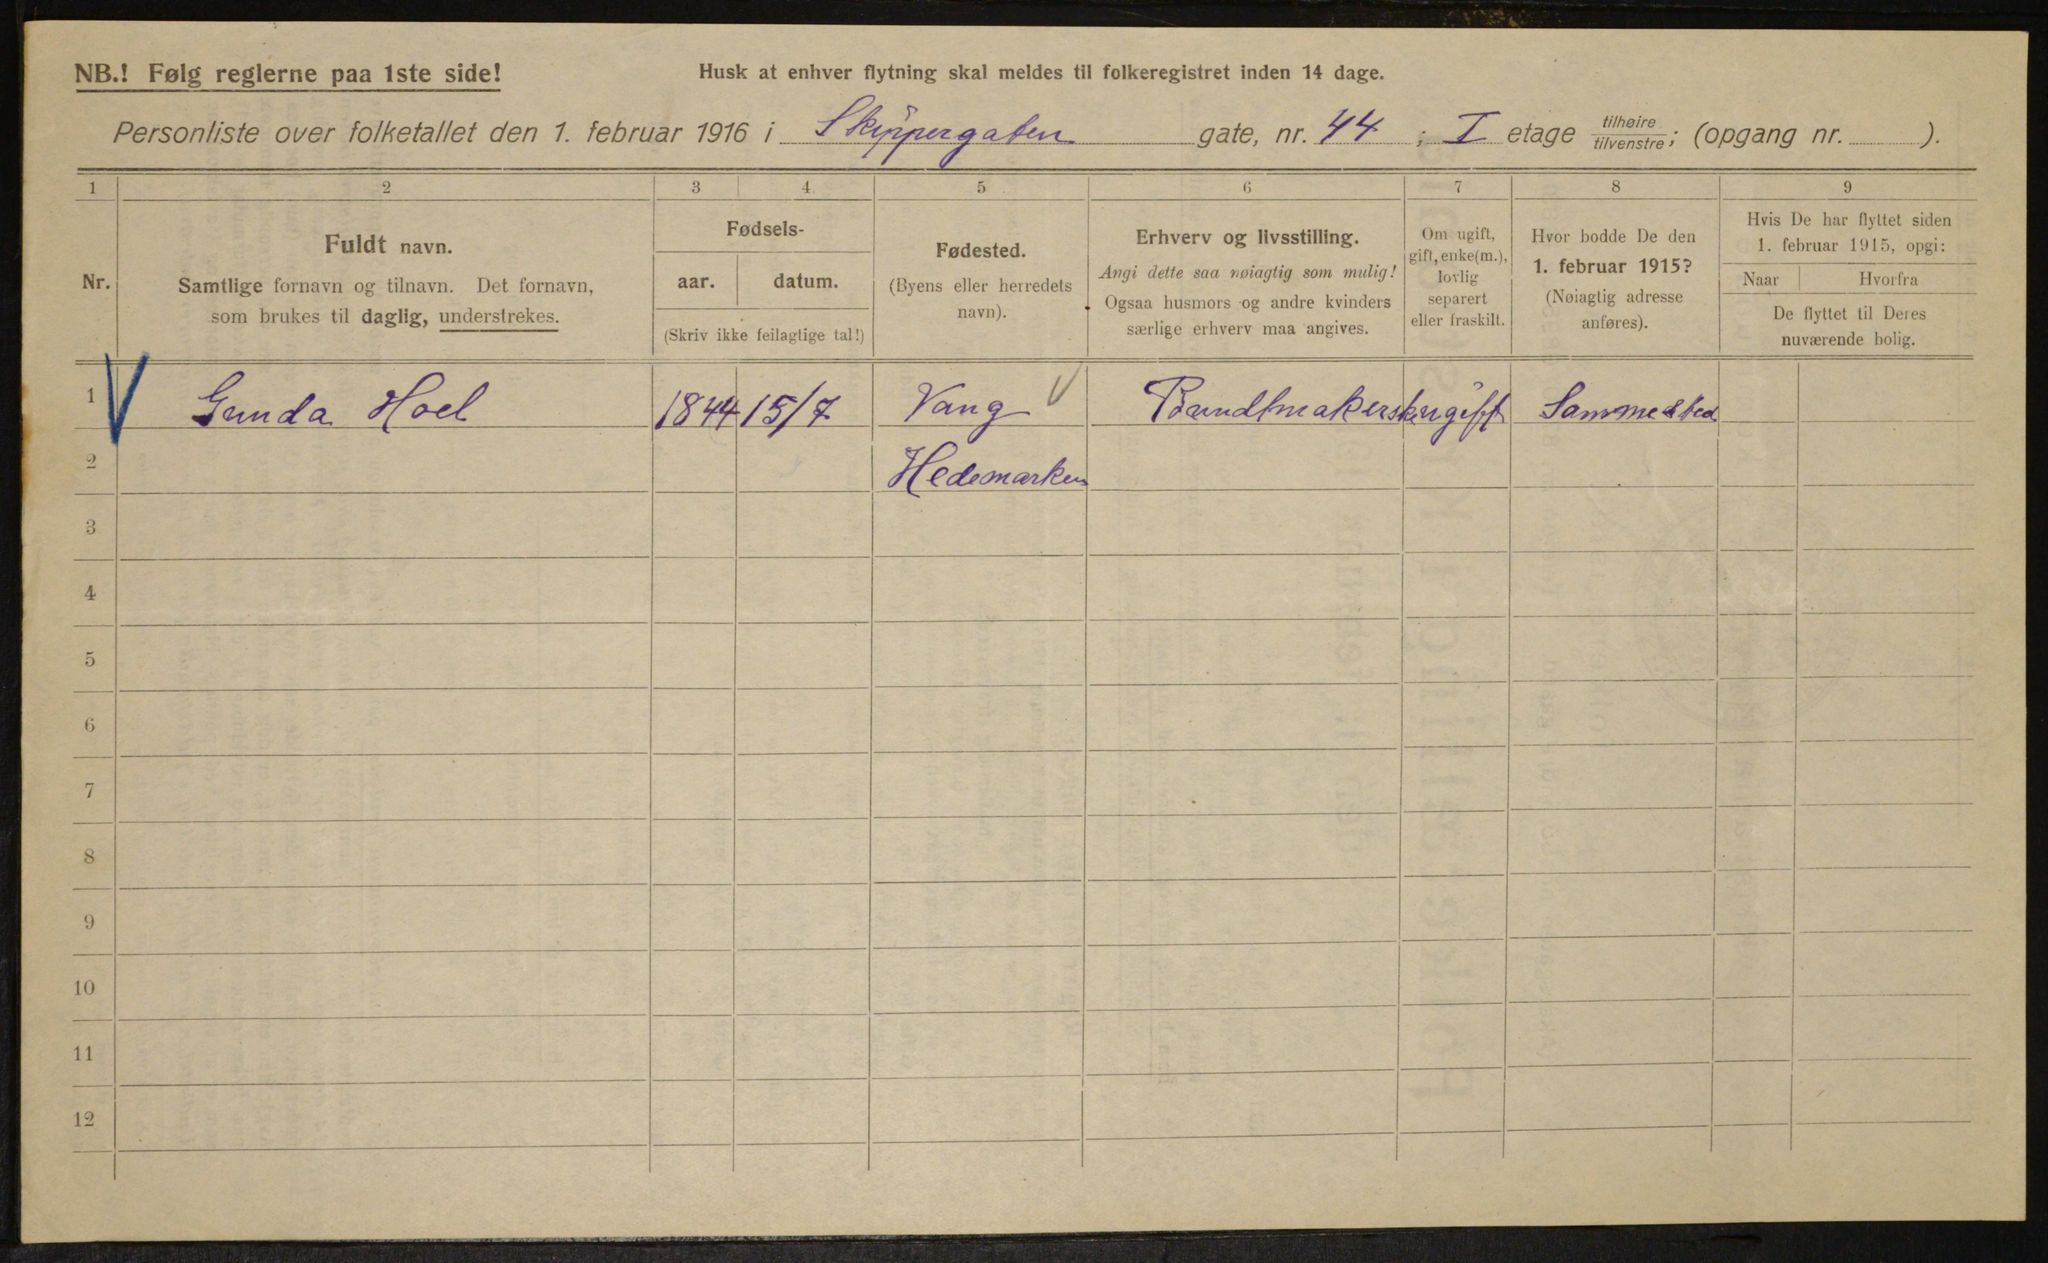 NB.! Følg reglerne paa 1ste side!
Husk at enhver flytning skal meldes til folkeregistret inden 14 dage.
Personliste over folketallet den 1. februar 1916 i Skippergaten gate, nr. 44 ; I etage tilhøire/tilvenstre; (opgang nr. ).
1 2 3 4 5 6 7 8 9
Nr.
Fuldt navn.
Samtlige fornavn og tilnavn. Det fornavn,
som brukes til daglig, understrekes.
Fødsels-
aar. datum.
(Skriv ikke feilagtige tal!)
Fødested.
(Byens eller herredets
navn).
Erhverv og livsstilling.
Angi dette saa nøiagtig som mulig!
Ogsaa husmors og andre kvinders
særlige erhverv maa angives.
Om ugift,
gift, enke(m.),
lovlig
separert
eller fraskilt.
Hvor bodde De den
1. februar 1915?
(Nøiagtig adresse
anføres).
Hvis De har flyttet siden
1. februar 1915, opgi:
Naar Hvorfra
De flyttet til Deres
nuværende bolig.
1 Gunda Hoel 1844 15/7 Vang ugift Sammested
2 Hedemarken
3
4
5
6
7
8
9
10
11
12